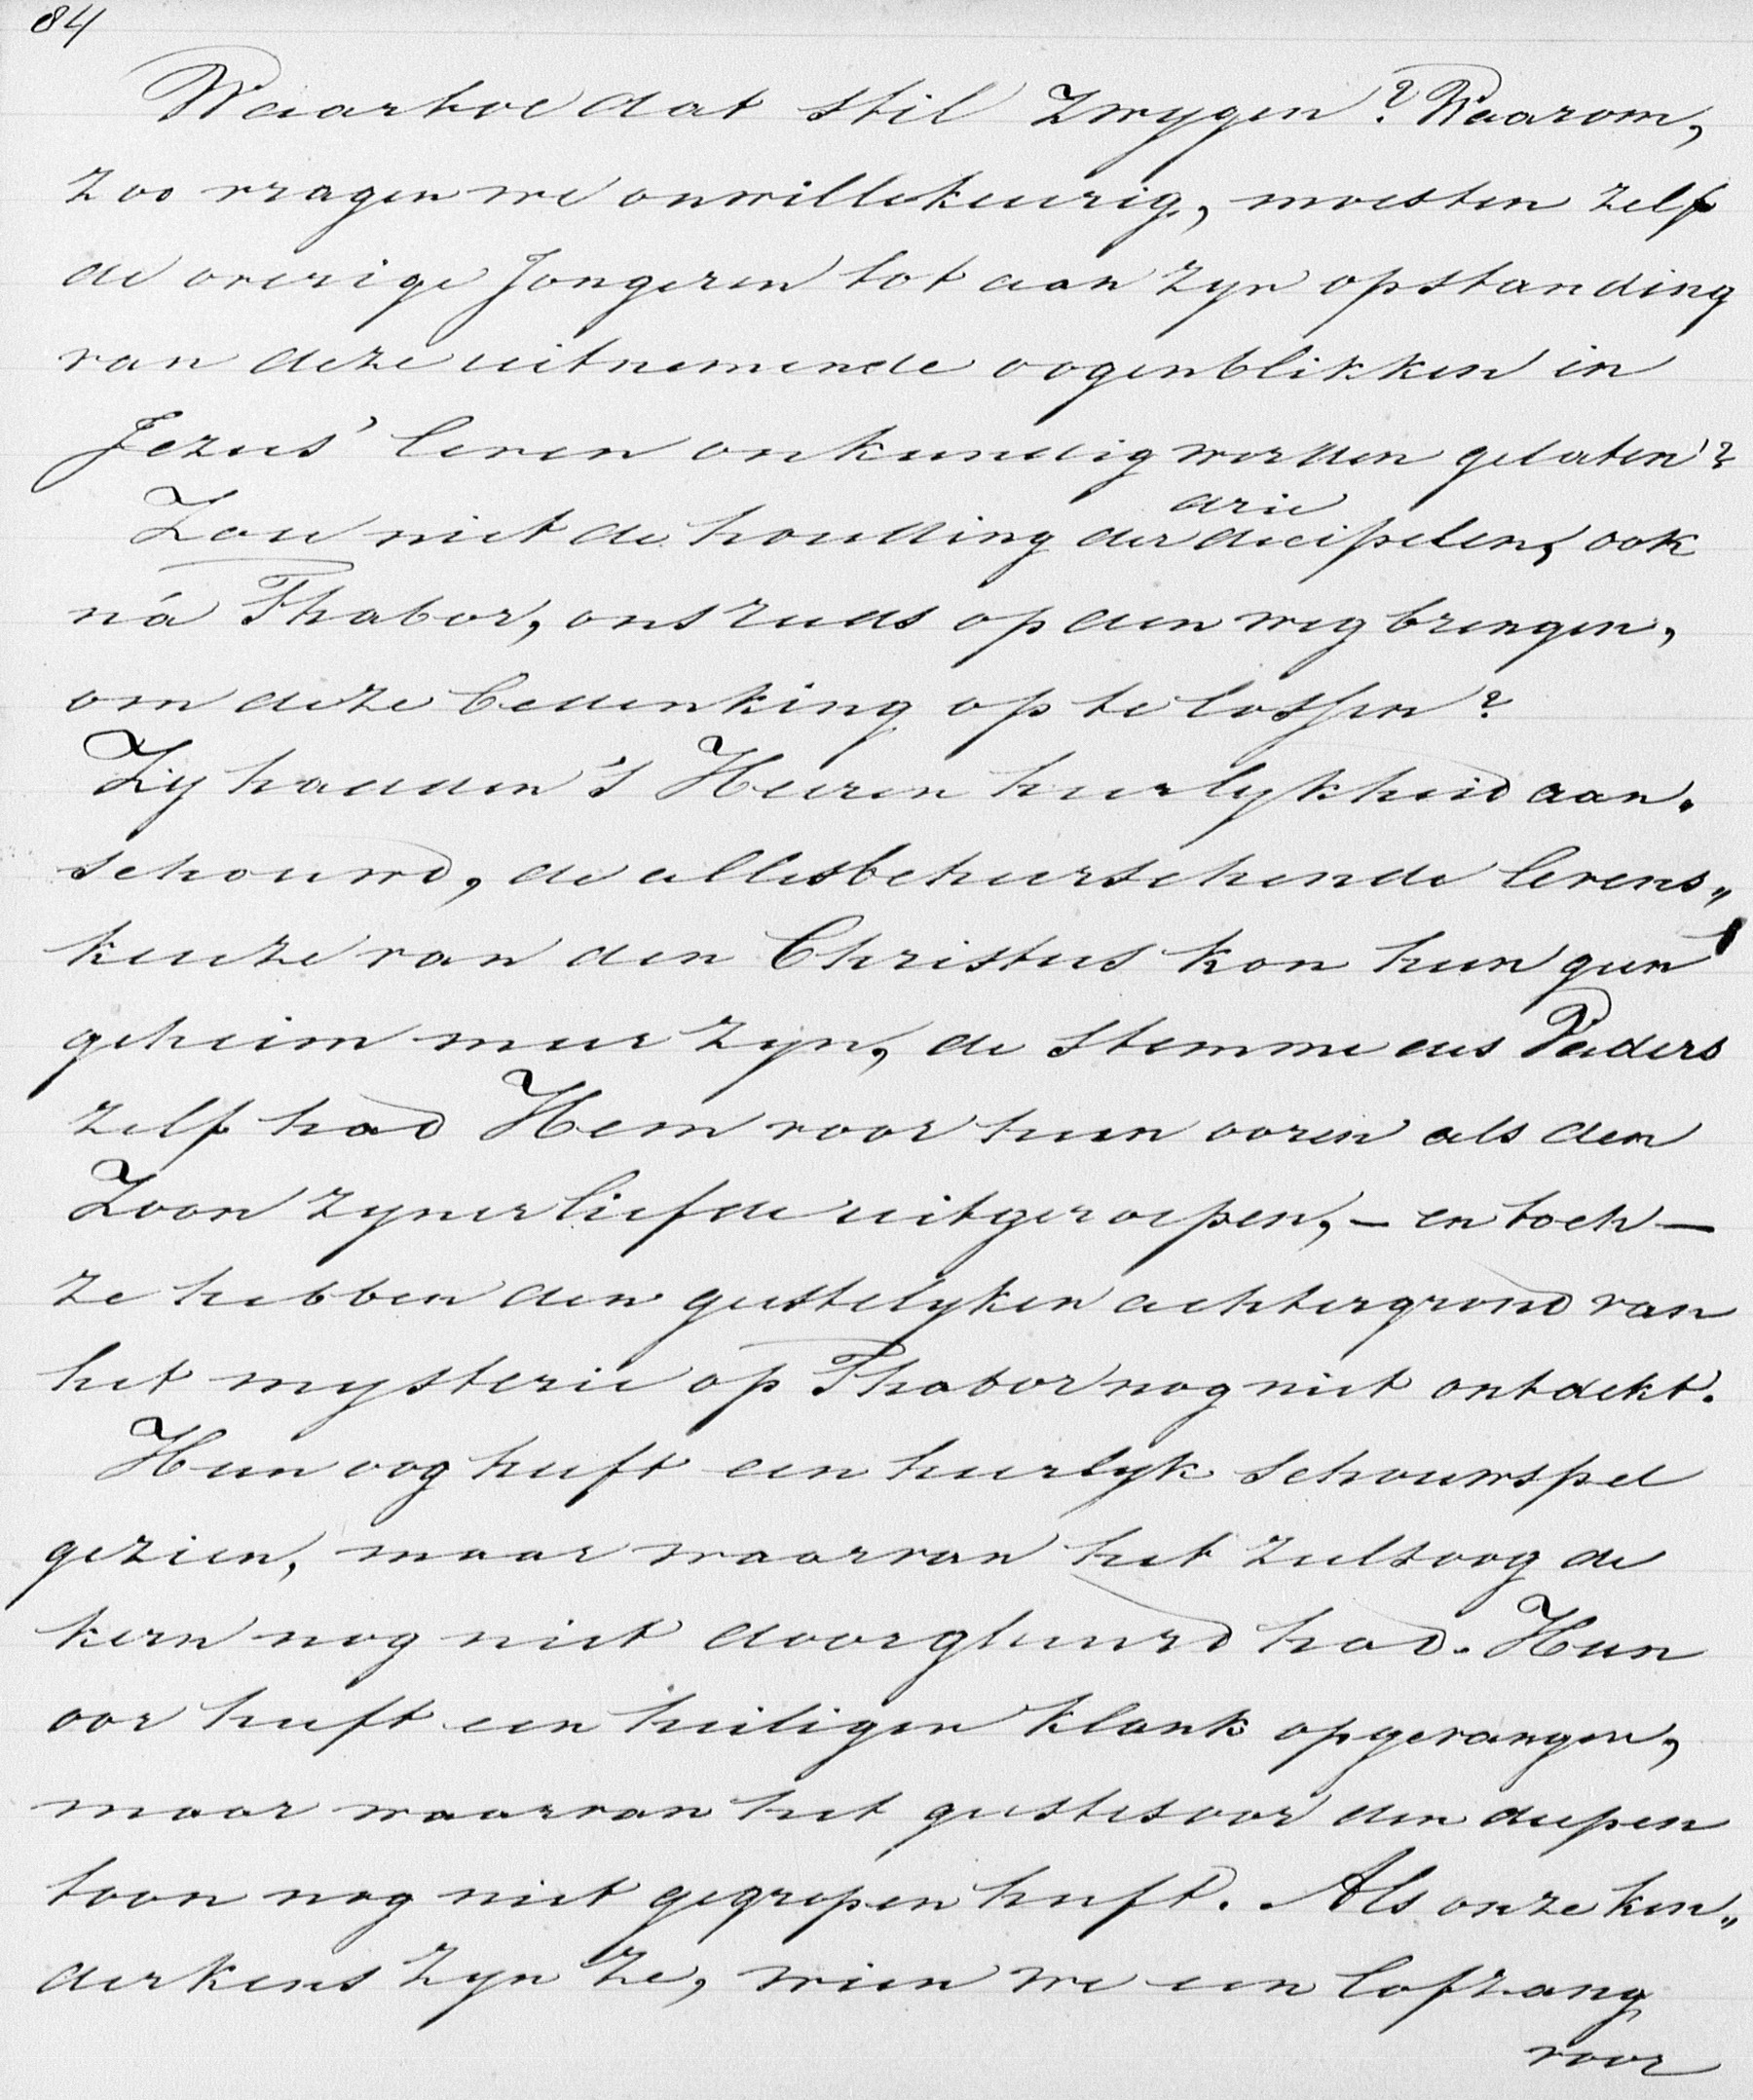 84
Waartoe dat stil zwygen? Waarom,
zoo vragen we onwillekeurig, moesten zelf
de overige Jongeren tot aan zyn opstanding
van deze uitnemende oogenblikken in
Jezus' leven onkundig worden gelaten?
drie
Zou niet de houding der dicipelen, ook
ná Thabor, ons reeds op den weg brengen,
om deze bedenking op te lossen?
Zij hadden 's Heeren heerlykheid aan„
schouwd, de allesbeheerschende levens„
keuze van den Christus kon hun geen
geheim meer zyn, de stemme des Vaders
zelf had Hem voor hun ooren als den
Zoon zyner liefde uitgeroepen, - en toch -
ze hebben den geestelyken achtergrond van
het mysterie op Thabor nog niet ontdekt.
Hun oog heeft een heerlyk schouwspel
gezien, maar waarvan het zielsoog de
kern nog niet doorgluurd had. Hun
oor heeft een heiligen klank opgevangen,
maar waarvan het geestesoor den diepen
toon nog niet gegrepen heeft. Als onze kin„
derkens zyn ze, wien we een lofzang
voor